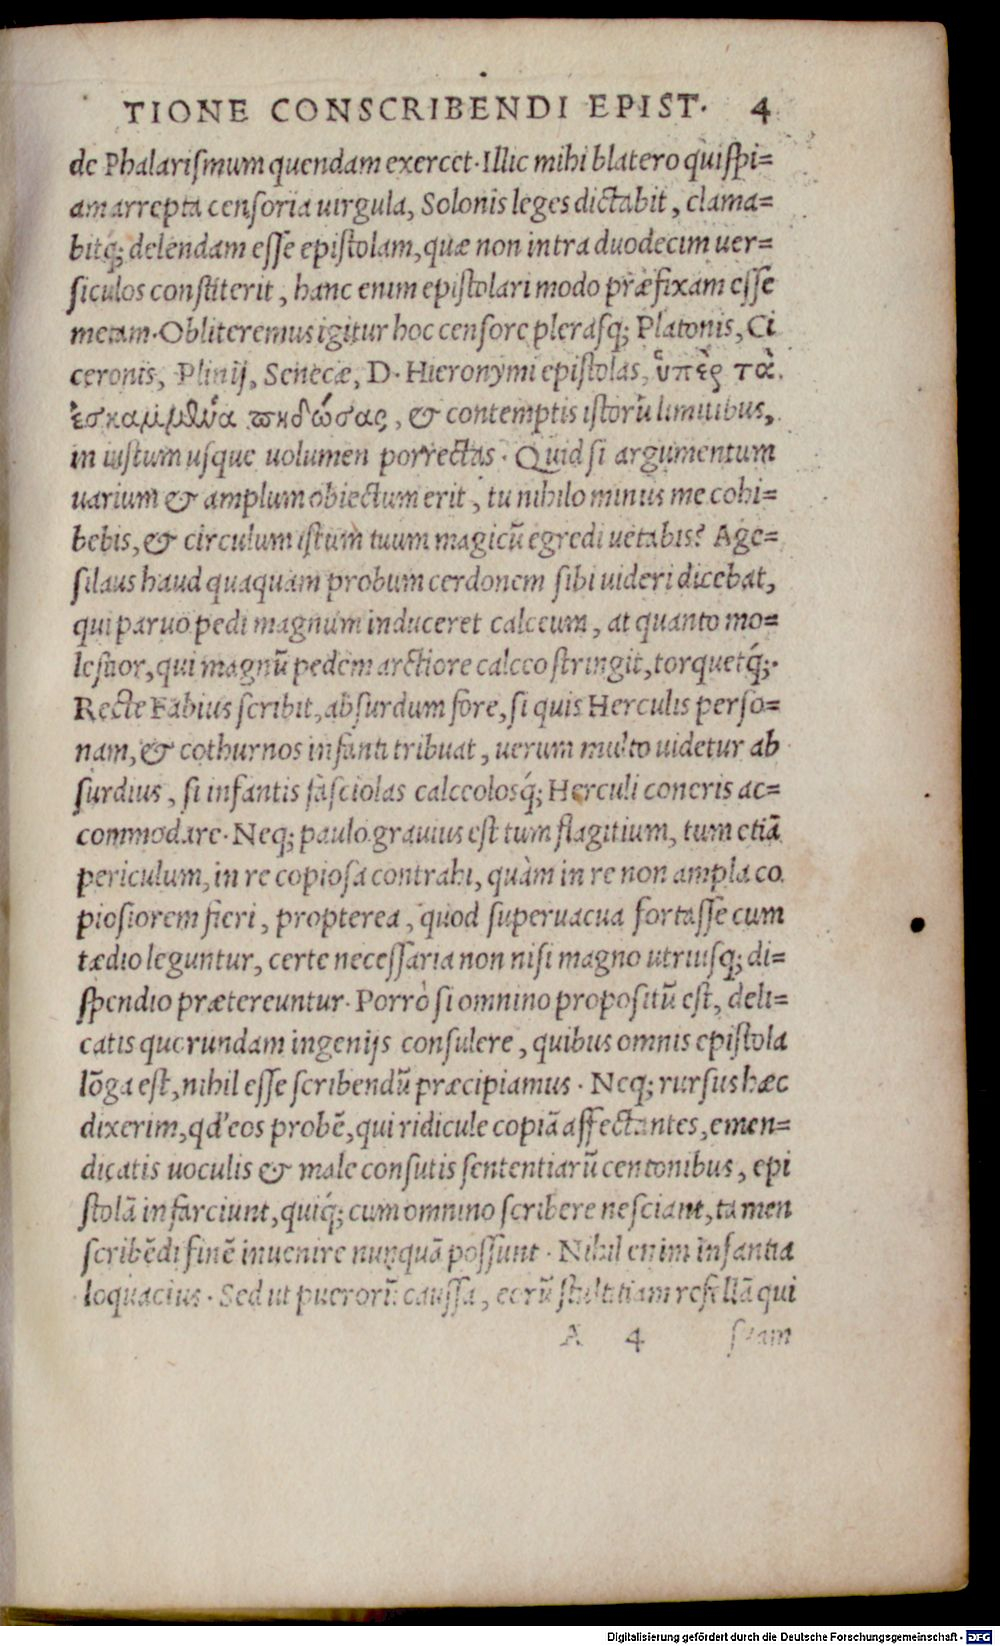 TIONE CONSCRIBENDI EPIST. 4
de Phalarismum quendam exercet. Illic mihi blatero quispi=
am arrepta censoria uirgula, Solonis leges dictabit, clama=
bitq́; delendam esse epistolam, quæ non intra duodecim uer=
siculos constiterit, hanc enim epistolari modo præfixam esse
metam. Obliteremus igitur hoc censore plerasq; Platonis, Ci
ceronis, Plinij, Senecæ, D. Hieronymi epistolas, ὑπὲρ τὰ
ἐσκαμμένα πηδώσας, & contemptis istorũ limitibus,
in iustum usque uolumen porrectas. Quid si argumentum
uarium & amplum obiectum erit, tu nihilo minus me cohi=
bebis, & circulum istum tuum magicũ egredi uetabis? Age=
silaus haud quaquam probum cerdonem sibi uideri dicebat,
qui paruo pedi magnum induceret calceum, at quanto mo=
lestior, qui magnũ pedem arctiore calceo stringit, torquetq́;.
Recte Fabius scribit, absurdum fore, si quis Herculis perso=
nam, & cothurnos infanti tribuat, uerum multo uidetur ab
surdius, si infantis fasciolas calceolosq́; Herculi coneris ac=
commodare. Neq; paulo grauius est tum flagitium, tum etiã
periculum, in re copiosa contrahi, quàm in re non ampla co
piosiorem fieri, propterea, quod superuacua fortasse cum
tædio leguntur, certe necessaria non nisi magno utriusq; di=
spendio prætereuntur. Porrò si omnino propositũ est, deli=
catis quorundam ingenijs consulere, quibus omnis epistola
lõga est, nihil esse scribendũ præcipiamus. Neq; rursus hæc
dixerim, qd' eos probẽ, qui ridicule copiã affectantes, emen=
dicatis uoculis & male consutis sententiarũ centonibus, epi
stolã infarciunt, quiq́; cum omnino scribere nesciant, tamen
scribẽdi finẽ inuenire nunquã possunt. Nihil enim infantia
loquacius. Sed ut puerorũ caussa, eorũ stultitiam refellã qui
A 4 suam
Digitalisierung gefördert durch die Deutsche Forschungsgemeinschaft - DFG